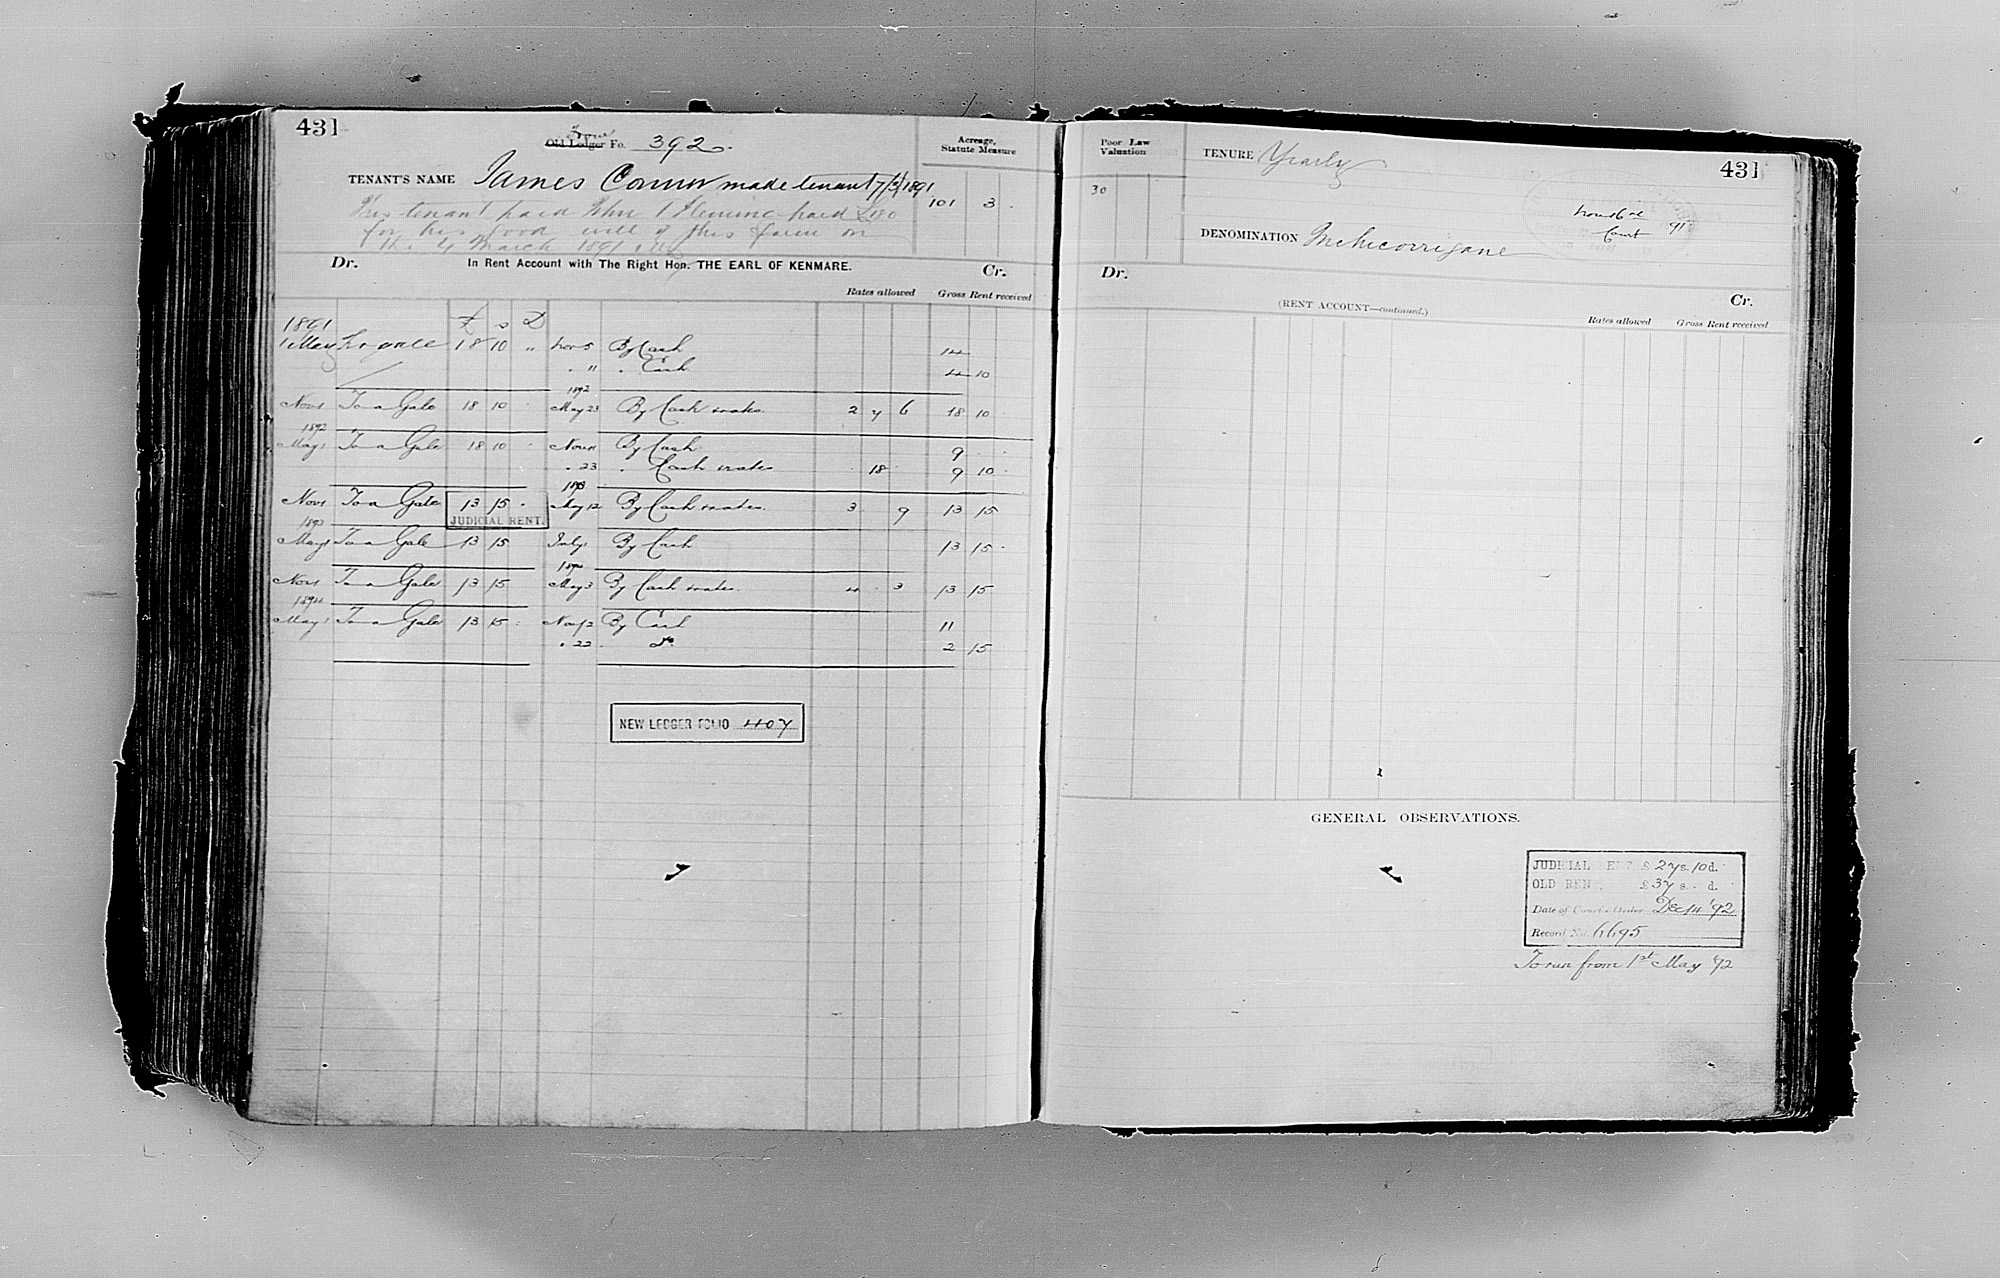 431
Old Ledger Fo. 392
TENANT'S NAME James Connor made tenant 7/3/1891
This tenant paid John Fleming paid £180
for his good will of this farm on
the 4 March 1891
Acreage,
Statute Measure
101 3
Dr. In Rent Account with The Right Hon. THE EARL OF KENMARE. Cr.
Rates allowed Gross Rent received
1891 £ s D
1 May To gale 18 10 " Nov 5 By Cash 14
" 11 " Cash 4 10
1892
Nov 1 To a Gale 18 10 May 23 By Cash & rates 2 7 6 18 10
1892
May 1 To a Gale 18 10 Nov 11 By Cash 9
" 23 " Cash & rates 18 9 10
1893
Nov 1 To a Gale 13 15 May 12 By Cash & rates 3 9 13 15
JUDICIAL RENT.
1893
May 1 To a Gale 13 15 July 1 By Cash 13 15
1894
Nov 1 To a Gale 13 15 May 3 By Cash & rates 4 3 13 15
1894
May 1 To a Gale 13 15 Nov 12 By Cash 11
" 22 Do 2 15
NEW LEDGER FOLIO 407
Poor Law
Valuation
30
TENURE Yearly
431
Court 91
DENOMINATION Inchicorrigane
Dr. (RENT ACCOUNT—continued.) Cr.
Rates allowed Gross Rent received
GENERAL OBSERVATIONS.
JUDICIAL RENT £27 s. 10 d.
OLD RENT, £37 s. d.
Date of Court's Order Dec 14 '92
Record No. 6695
To run from 1st May '92